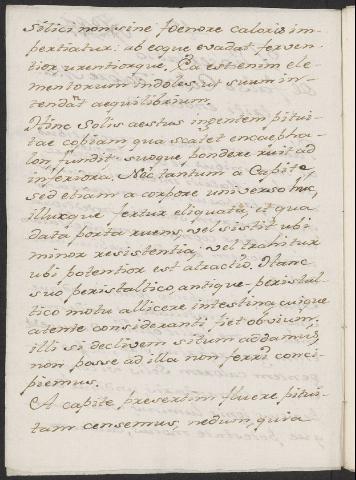 Silici non sine foenore caloris im-
pertiatur: ab eoque evadat ferven-
tior urentiorque. Ea est enim ele-
mentorum indoles, ut suum in-
tendant aequilibrium.
Hinc Solis aestus ingentem pitui-
tae copiam qua scatet encaepha-
lon fundit suoque pondere ruit ad
inferiora. Nec tantum à Capite,
sed etiam a corpore universo huc,
illucque fertur eliquata, et qua
data porta ruens, vel sistit ubi
minor resistentia, vel trahitur
ubi potentior est atractio. Hanc
suo peristaltico, antique-peristal-
tico motu allicere intestina cuique
atente consideranti fiet obvium.
illi si declivem situm addamus,
non posse ad illa non ferri conci-
piemus.
A capite presertim fluere pitui-
tam censemus, nedum quia